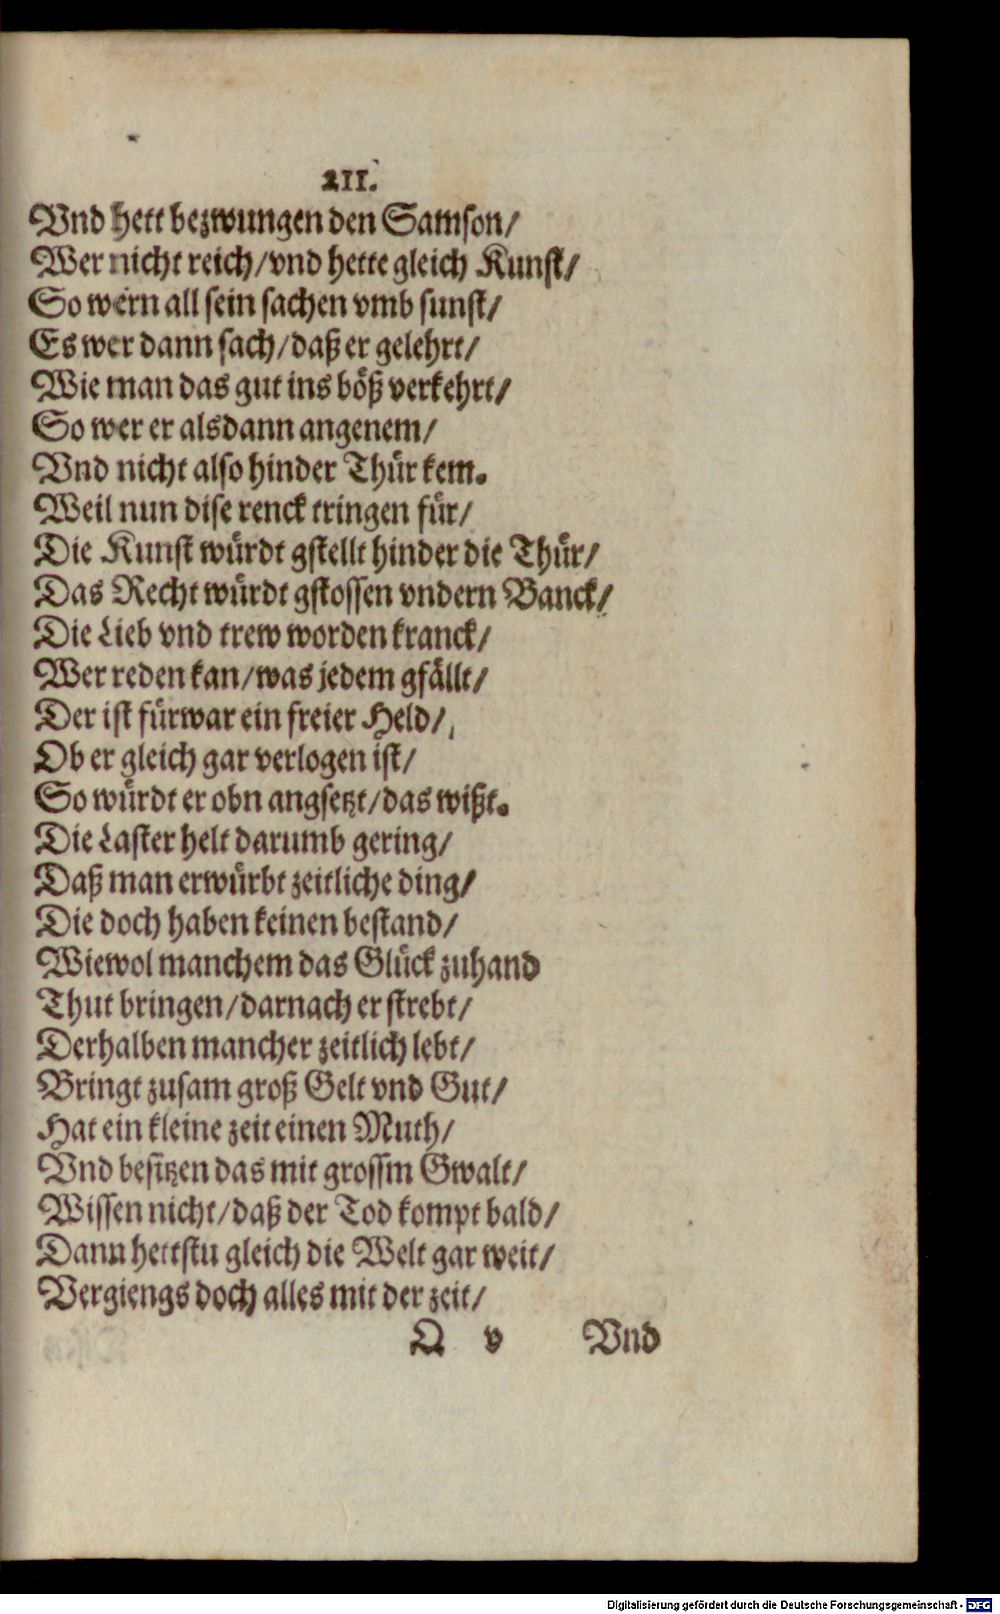 211.
Vnd hett bezwungen den Samson/
Wer nicht reich/vnd hette gleich Kunst/
So wern all sein sachen vmb sunst/
Es wer dann sach/daß er gelehrt/
Wie man das gut ins böß verkehrt/
So wer er alsdann angenem/
Vnd nicht also hinder Thür kem.
Weil nun dise renck tringen für/
Die Kunst würdt gstellt hinder die Thür/
Das Recht würdt gstossen vndern Banck/
Die Lieb vnd trew worden kranck/
Wer reden kan/was jedem gfällt/
Der ist fürwar ein freier Held/
Ob er gleich gar verlogen ist/
So würdt er obn angsetzt/das wißt.
Die Laster helt darumb gering/
Daß man erwürbt zeitliche ding/
Die doch haben keinen bestand/
Wiewol manchem das Glück zuhand
Thut bringen/darnach er strebt/
Derhalben mancher zeitlich lebt/
Bringt zusam groß Gelt vnd Gut/
Hat ein kleine zeit einen Muth/
Vnd besitzen das mit grossm Gwalt/
Wissen nicht/daß der Tod kompt bald/
Dann hettstu gleich die Welt gar weit/
Vergiengs doch alles mit der zeit/
Q v Vnd
Digitalisierung gefördert durch die Deutsche Forschungsgemeinschaft - DFG